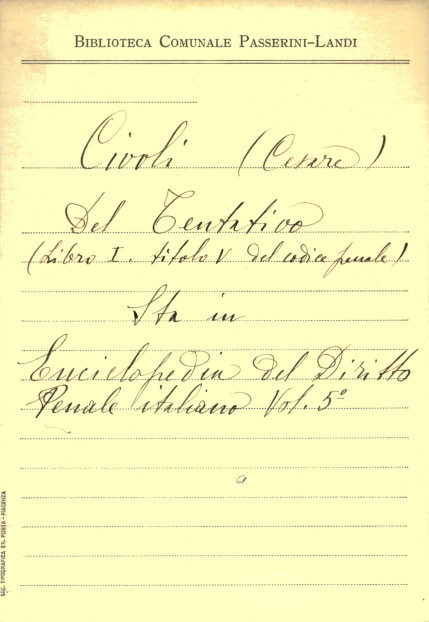 BIBLIOTECA COMUNALE PASSERINI-LANDI
Civoli (Cesare)
Del Tentativo
(Libro I. titolo V del codice penale)
Sta in
Enciclopedia del Diritto
Penale italiano Vol. 5º
SOC. TIPOGRAFICA ED. PORTA - PIACENZA